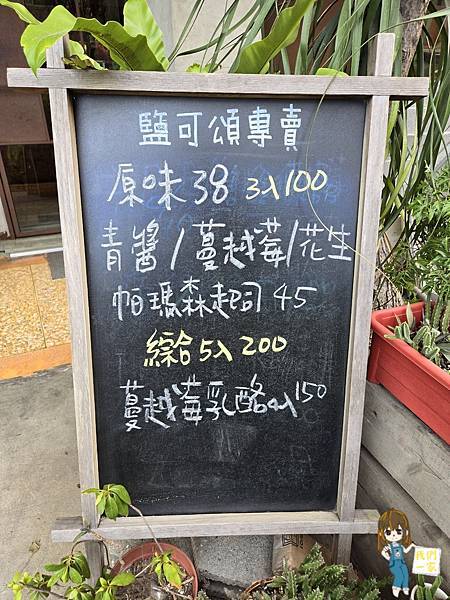 鹽可頌專賣
原味38 3入100
青醬/蔓越莓/花生
帕瑪森起司 45
綜合5入200
蔓越莓乳酪4入150
我們一家